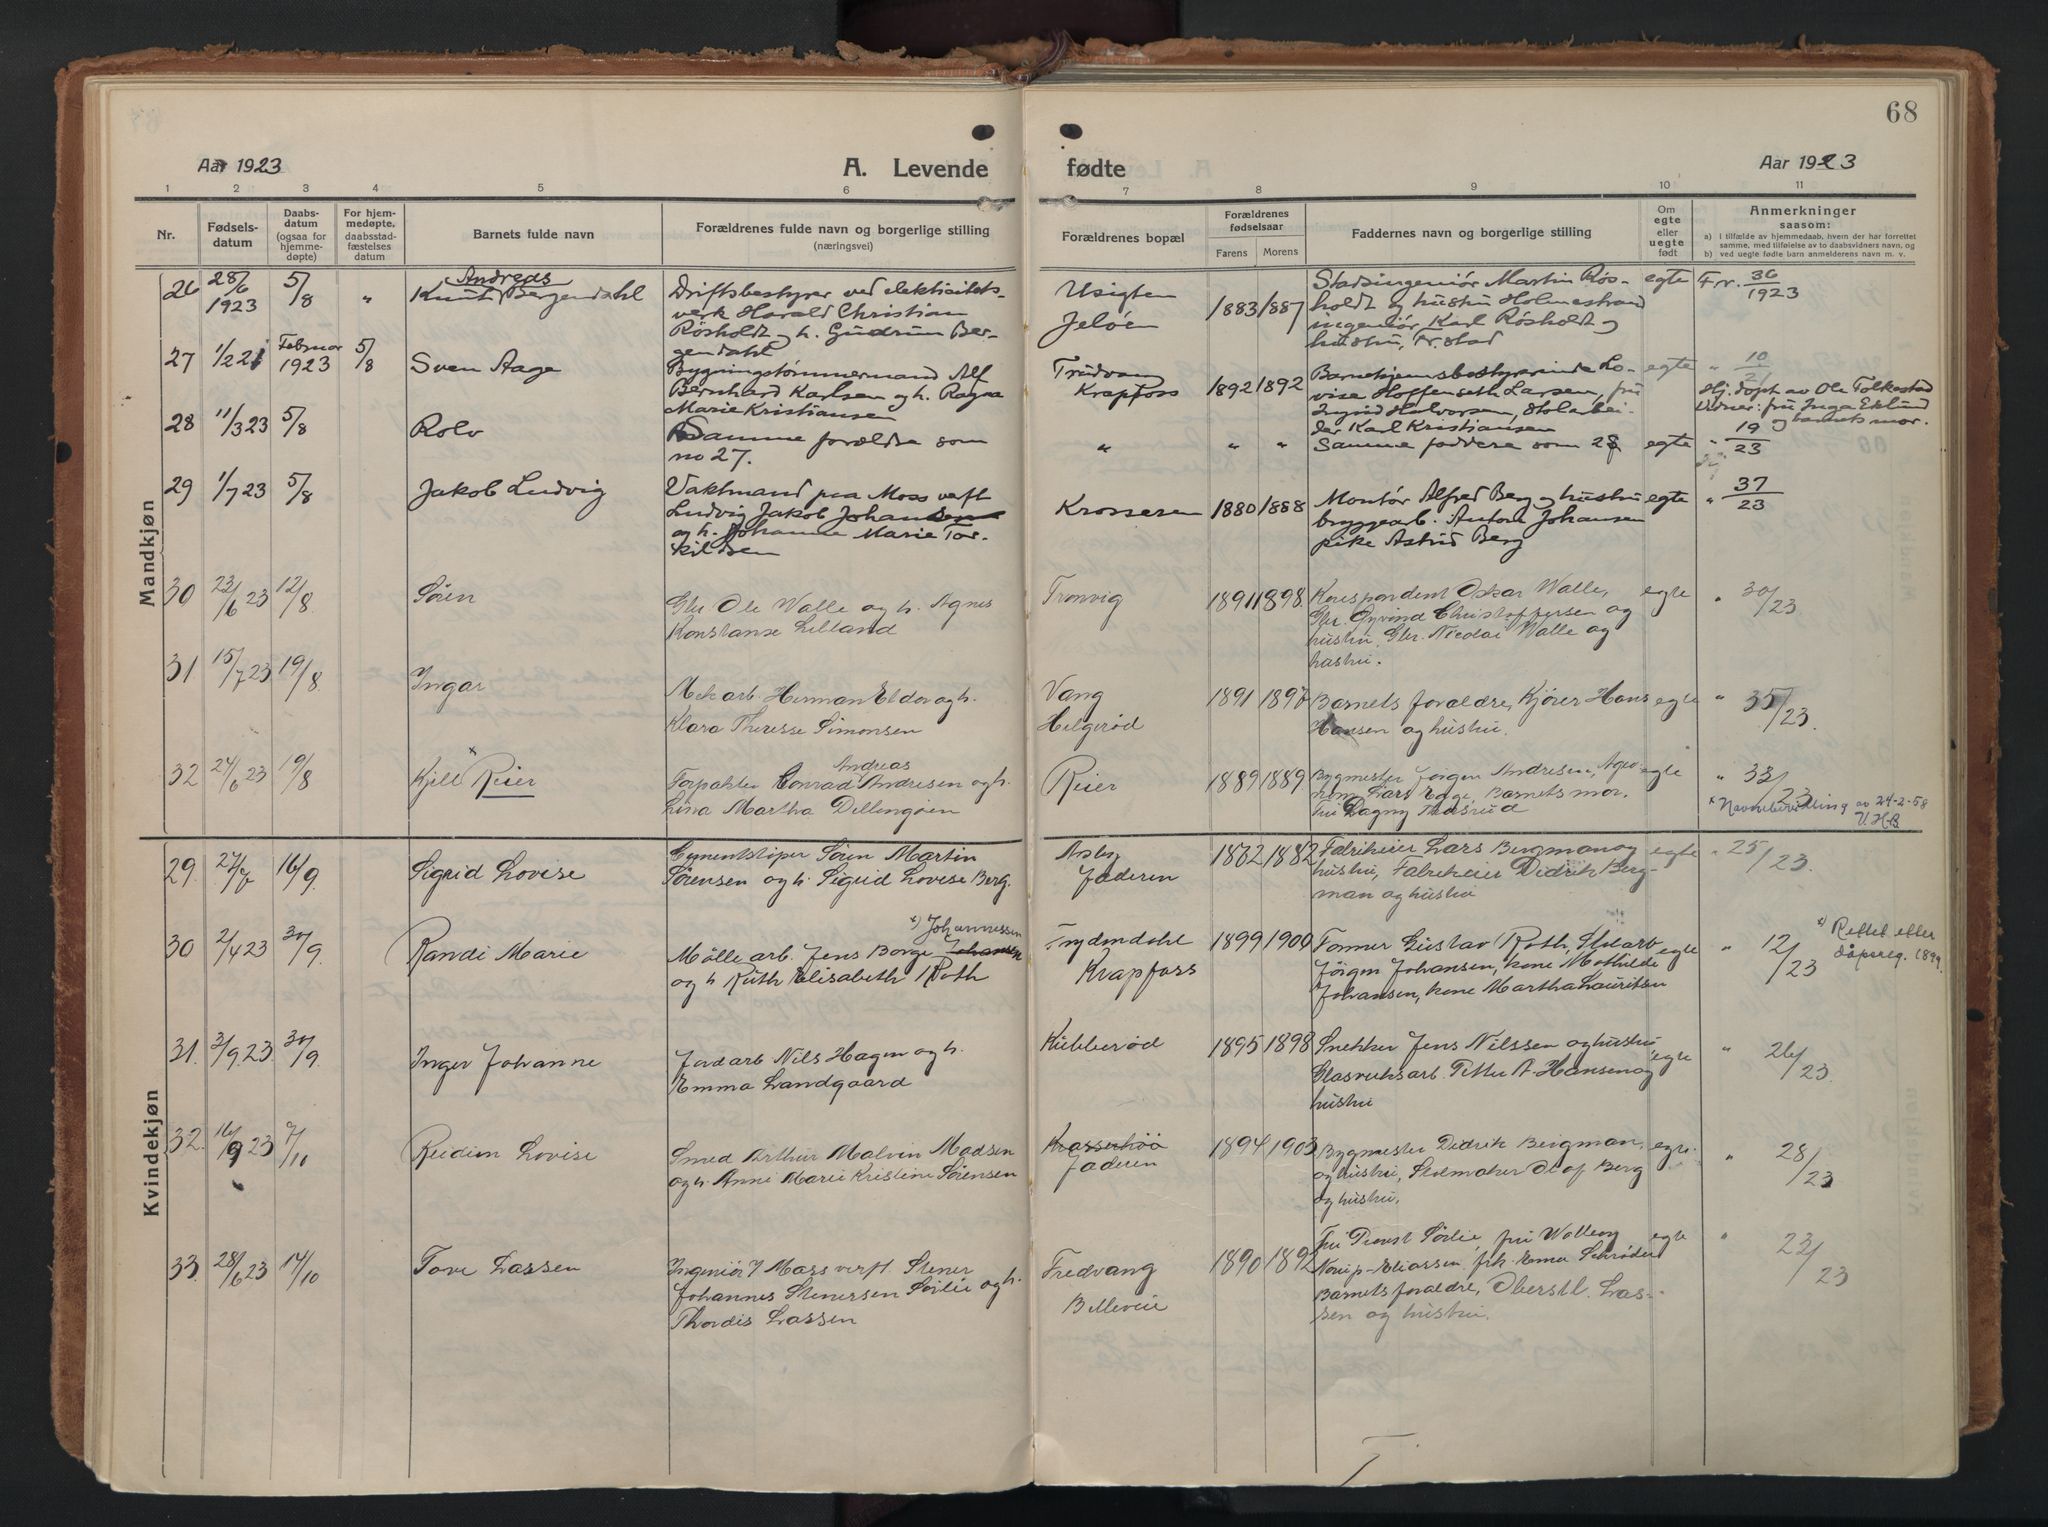 68
Aar 1923
A. Levende
fødte
Aar 1923
1 2 3 4 5 6 7 8 9 10 11
Nr.
Fødsels-
datum
Daabs-
datum
(ogsaa for
hjemme-
døpte)
For hjem-
medøpte,
daabsstad-
fæstelses
datum
Barnets fulde navn
Forældrenes fulde navn og borgerlige stilling
(næringsvei)
Forældrenes bopæl
Forældrenes
fødselsaar
Farens Morens
Faddernes navn og borgerlige stilling
Om
egte
eller
uegte
født
Anmerkninger
saasom:
a) i tilfælde av hjemmedaab, hvem der har forrettet
samme, med tilføielse av to daabsvidners navn, og
b) ved uegte fødte barn anmelderens navn m. v.
Mandkjøn
26 28/6 1923 5/8 "
Andreas
Knut Bergendahl
Driftsbestyrer ved elektricitets-
verk Harald Christian
Røsholdt og h. Gudrun Ber-
gendahl
Usigten
Jeløen
1883 1887
Stadsingeniør Martin Røs-
holdt og hustru Holmestrand
ingeniør Karl Røsholdt og
hustru, Fr.stad
egte
Fr. 36/1923
27 1/2 21 Februar 1923 5/8
Sven Aage
Bygningstømmermand Alf
Bernhard Karlsen og h. Ragna
Marie Kristiansen
Trudvang
Krapfoss
1892 1892
Barnehjemsbestyrerinde Lo-
vise Hoffenseth Larsen, fru
Ingrid Halvorsen, Stolarbei-
der Karl Kristiansen
egte
" 10/21
Hj. døpt av Ole Folkestad
Vidner: fru Inga Eklund
og barnets mor.
28 11/3 23 5/8
Rolv
Samme forældre som
no 27.
" " "
Samme faddere som 27
egte
" 19/23
29 1/7 23 5/8
Jakob Ludvig
Vaktmand paa Moss verft
Ludvig Jakob Johansen
og h. Johanne Marie Tor-
kildsen
Krosseren
1880 1888
Montør Alfred Berg og hustru
bryggearb. Anton Johansen
pike Astrid Berg
egte
" 37/23
30 23/6 23 12/8
Søren
Gbr. Ole Walle og h. Agnes
Konstanse Lilland
Tronvig
1891 1898
Korespondent Oskar Walle,
Gbr. Øyvind Christoffersen og
hustru, Gbr. Nicolai Walle og
hustru.
egte
" 30/23
31 15/7 23 19/8
Ingar
Mek arb. Herman Eldor og h.
Klara Theresse Simonsen
Vang
Helgerød
1891
Barnets foraldre, Kjører Hans
Hansen og hustru.
egte
" 35/23
32 24/6 23 19/8
Kjell Reier
Andreas
Forpakter Conrad Andresen og h.
Lina Martha Dillingøen
Reier
1889 1889
Bygmester Jørgen Andresen, Agro-
nom Lars Ege, Barnets mor.
Fru Dagny
egte
" 33/23
x Navneberikting av 24-2-58
V.H.B.
Kvindekjøn
29. 27/7 16/9
Sigrid Lovise
Cementstøper Søren Martin
Sørensen og h. Sigrid Lovise Berg.
Jaderen
1882 1882
Fabrikeier Lars Bergman og
hustru, Fabrikeier Didrik Berg-
man og hustru
egte
" 25/23.
30 2/4 23 30/9
Randi Marie
x) Johannessen
Mølle arb. Jens Borge Johansen
og h Ruth Elisabeth Roth
Frydendahl
Krapfoss
1899 1900
Former Gustav Roth, Stolarb
Jørgen Johansen, kone Mathilde
Johansen, kone Martha Lauritsen
egte
" 12/23
x) Rettet efter
dåpsreg. 1899.
31. 3/9 23 30/9
Inger Johanne
Jordarb Nils Hagen og h.
Emma Landgaard
Kubberød
1895 1898
Snekker Jens Nilssen og hustru
Glasverksarb. Petter A. Hansen og
hustru
egte
" 26/23.
32. 16/9 23 7/10
Reidun Lovise
Smed Arthur Malvin Madsen
og h. Anni Marie Kristine Sørensen
Jaderen
1894 1903
Bygmester Didrik Bergman,
og hustru, Stolmaker Olaf Berg
og hustru.
egte
" 28/23
33. 28/6 23 14/10
Tove Lassen
Ingeniør v Moss verft. Stener
Johannes Stenersen Sørlie og h.
Thordis Lassen
Fredvang
Bellevue
1890 1892
Fru Provst Sørlie, fru Walborg
Norup-Eliassen, frk. Emma Schrøder
Barnets foraldre, Oberstl. Las-
sen og hustru.
egte
" 23/23